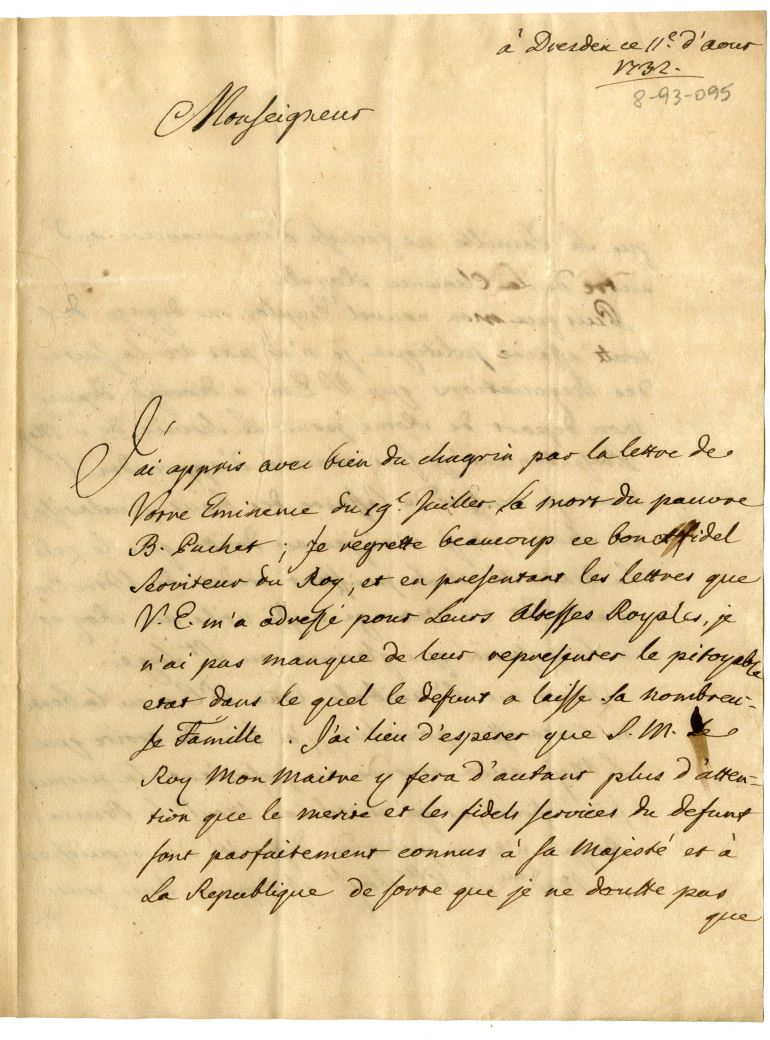 à Dresden ce 11e d'aout
1732.
8-93-095
Monseigneur
J'ai appris avec bien du chagrin par la lettre de
Votre Eminence du 19e Juillet la mort du pauvre
B. Puchet ; Je regrette beaucoup ce bon et fidel
Serviteur du Roy, et en presentant les lettres que
V. E. m'a adressé pour Leurs Altesses Royales, je
n'ai pas manque de leur representer le pitoyable
etat dans le quel le defunt a laisse sa nombreu-
se Famille . J'ai lieu d'esperer que S. M. Le
Roy Mon Maitre y fera d'autant plus d'atten-
tion que le merite et les fidels services du defunt
sont parfaitement connus à sa Majesté et à
La Republique de sorte que je ne doutte pas
que